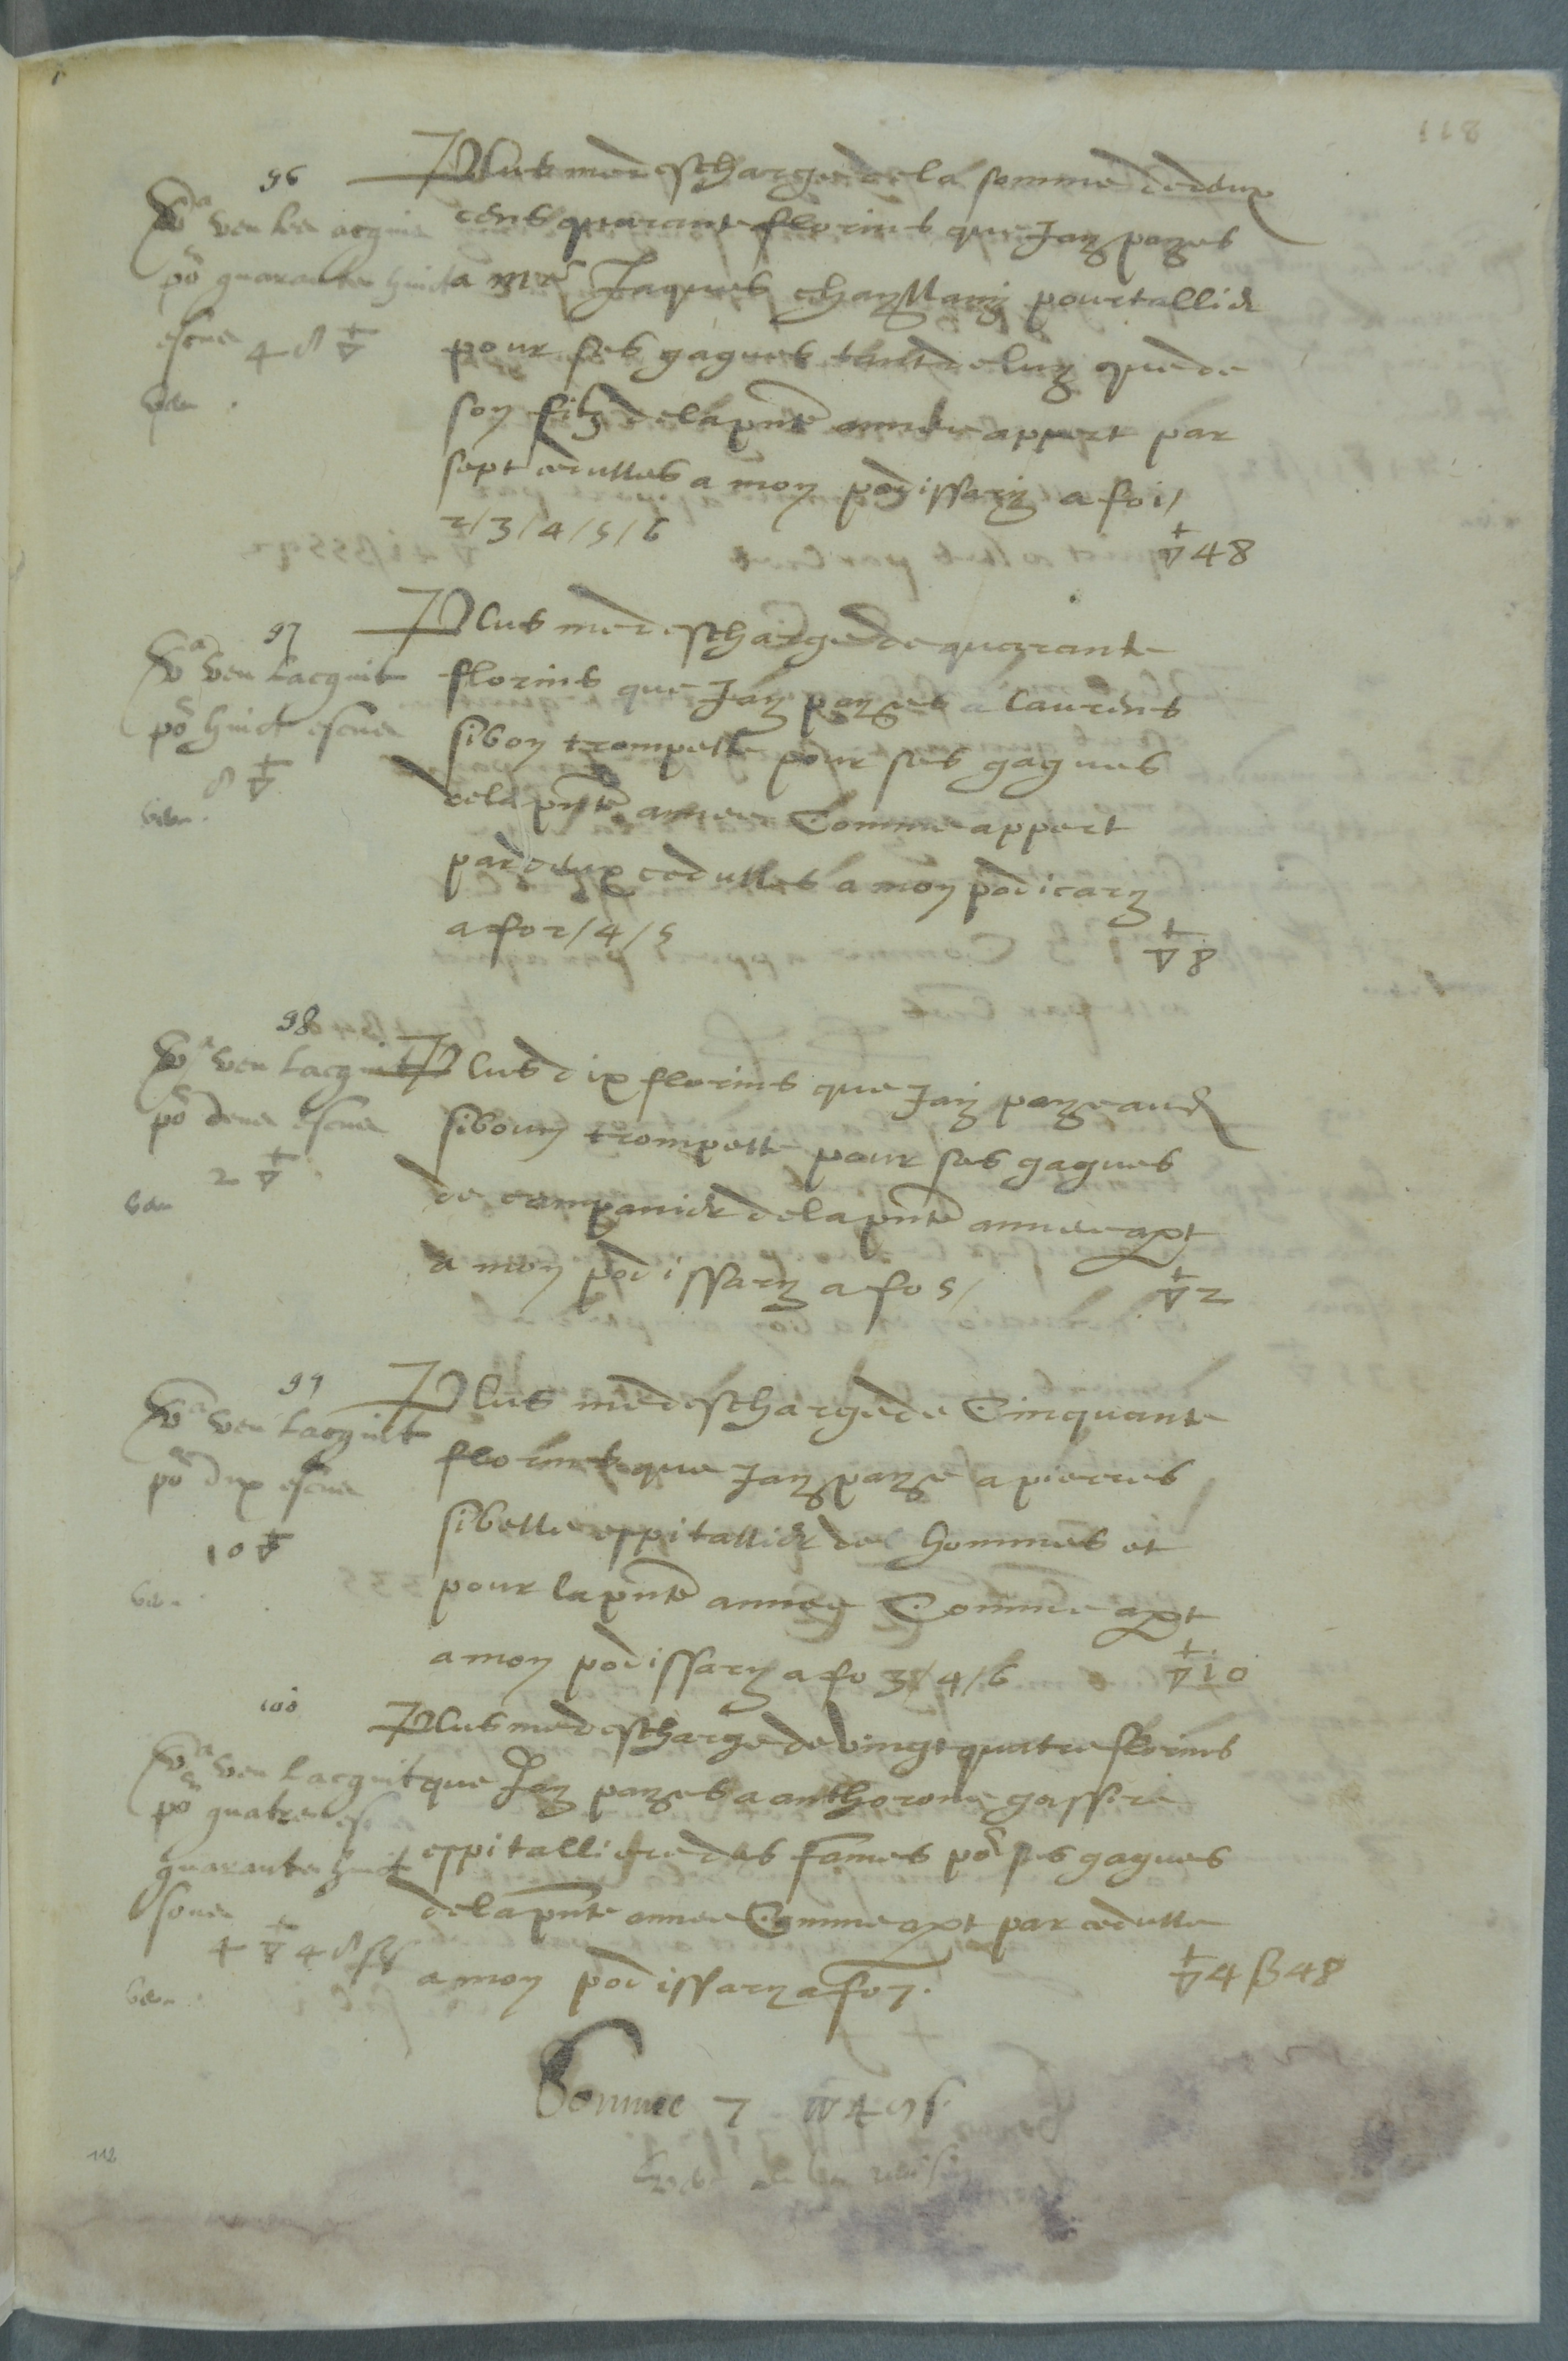 96
Plus me descharge de la somme de deux
cens quarante florins que Jay payes
a mre Jaques pourtallier
pour ses gagues tant de luy que de
son filz de la pnte annee appert par
sept cedulles a mon podissary a fo 1/
2/3/4/5/6 48
Va veu les aquis
po quarante huict
escus 48
97
Plus me descharge de quarante
florins que Jay payes a Laurens
sibon trompette pour ses gagues
de la pnte annee Comme appert
par deux cedulles a mon podicary
a fo 2/4/5 8
Va veu lacquit
po huict escus
8
98
Plus dix florins que Jay paye aud
sibon trompette pour ses gagues
de companier de la pnte annee apt
a mon podissary a fo 5/ 2
Va veu lacquit
po deux escus
2
99
Plus me descharge de Cinquante
florins que Jay paye a pierres
sibelle espitallier des hommes et
pour la pnte annee Comme apt
a mon podissary a fo 3/4/6 10
Va veu lacquit
po dix escus
10
100
Plus me descharge de vingt quatre florins
que Jay payes a anthorone gassire
espitalliere des fames po ses gagues
de la pnte annee Comme apt par cedulle
a mon podissary a fo 7. 4 ß 48
Va veu lacquit
po quatre es
quarante huict
souz
4 48
Somme 7
112